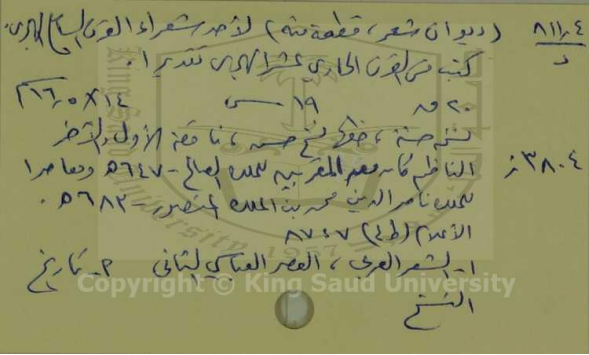 ٨١١٫٤ (ديوان شعر، قطعة منه) لأحد شعراء القرن السابع الهجري.
د كتب في القرن الحادي عشر الهجري تقديرا.
٢٠ ق ١٩ س ١٤×٢١٦٫٥
نسخة حسنة، خطها نسخ حسن، ناقصة الأول والآخر
٣٨٠٤ ز الناظم كان من المقربين للملك الصالح -٦٤٧هـ ومعاصرا
للملك ناصر الدين محمد بن الملك المنصور -٦٨٣هـ.
الأعلام (ط٤) ٧: ٨٧
١- الشعر العربي، العصر العباسي الثاني ٢- تاريخ
النسخ
Copyright © King Saud University
1957